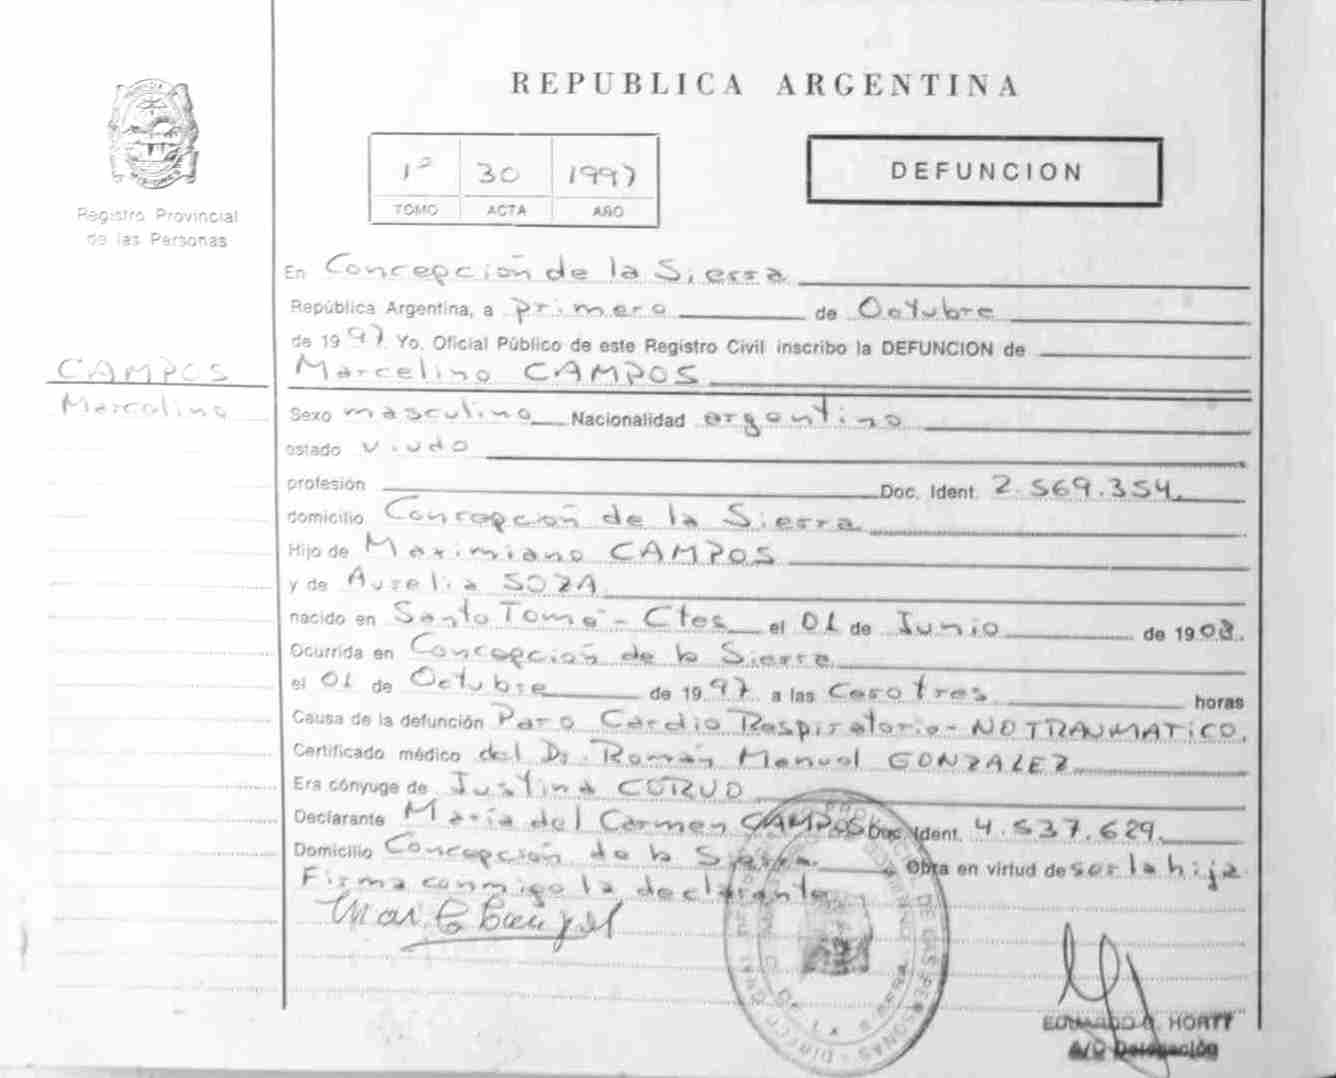 REPUBLICA ARGENTINA
Registro Provincial
de las Personas
1º 30 1997
TOMO ACTA AÑO
DEFUNCION
CAMPOS
Marcelino
En Concepción de la Sierra
República Argentina, a primero de Octubre
de 1997. Yo, Oficial Público de este Registro Civil inscribo la DEFUNCION de
Marcelino CAMPOS
Sexo masculino Nacionalidad argentino
estado viudo
profesión Doc. Ident. 2.569.354.
domicilio Concepción de la Sierra
Hijo de Maximiano CAMPOS
y de Aurelia SOZA
nacido en Santo Tomé - Ctes el 01 de Junio de 1908.
Ocurrida en Concepción de la Sierra
el 01 de Octubre de 1997. a las Cero tres horas
Causa de la defunción Paro Cardio Respiratorio - NO TRAUMATICO.
Certificado médico del Dr. Román Manuel GONZALEZ
Era cónyuge de Justina
Declarante María del Carmen CAMPOS Doc. Ident. 4.537.629.
Domicilio Concepción de la Sierra Obra en virtud de ser la hija.
Firma conmigo la declarante
EDUARDO HORTT
A/C Delegación